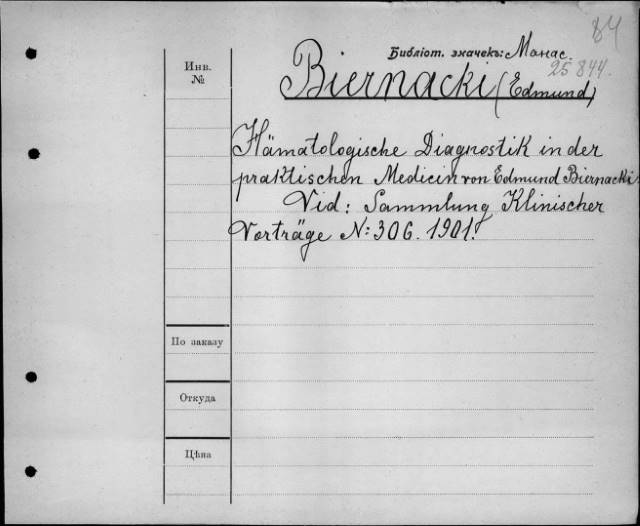 84
Библіот. значекъ: Манас.
25844.
Инв.
№
Biernacki (Edmund)
Hämatologische Diagnostik in der
praktischen Medicin von Edmund Biernacki.
Vid: Sammlung Klinischer
Vorträge N: 306. 1901.
По заказу
Откуда
Цѣна